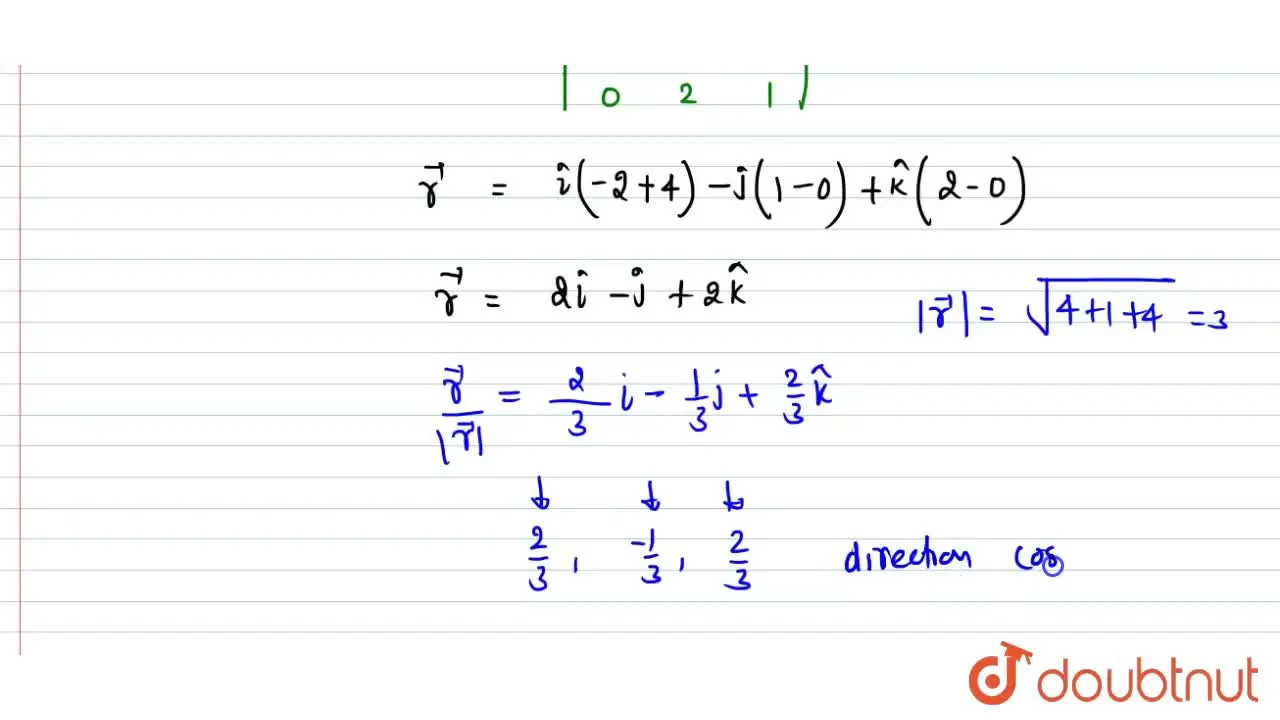 | 0 2 1 |
r⃗ = î(-2+4) - ĵ(1-0) + k̂(2-0)
r⃗ = 2î - ĵ + 2k̂
|r⃗| = √(4+1+4) = 3
r⃗/|r⃗| = 2/3 i - 1/3 j + 2/3 k̂
↓ ↓ ↓
2/3, -1/3, 2/3 direction cos
doubtnut